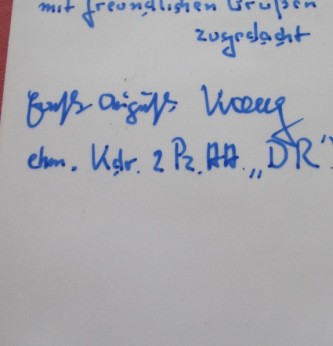 mit freundlichen Grüßen
zugedacht
Ernst August Krag
ehm. Kdr. 2 Pz. AA. „DR"